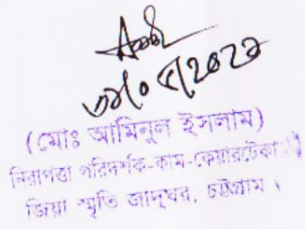 (মোঃ আমিনুল ইসলাম)
নিরাপত্তা পরিদর্শক-কাম-কেয়ারটেকার
জিয়া স্মৃতি জাদুঘর, চট্টগ্রাম।